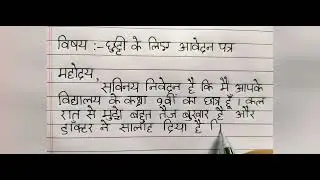 विषय :- छुट्टी के लिए आवेदन पत्र
महोदय,
सविनय निवेदन है कि मैं आपके
विद्यालय के कक्षा 9वीं का छात्र हूँ। कल
रात से मुझे बहुत तेज बुखार है और
डॉक्टर ने सालाह दिया है